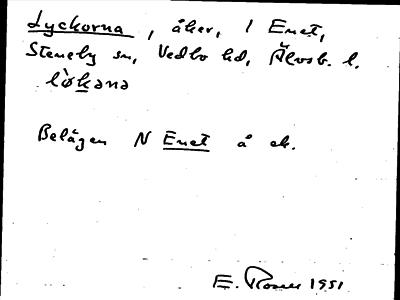 Lyckorna, åker, 1 Enet,
Steneby sn, Vedbo hd, Älvsb. l.
lø̀kana
Belägen N Enet å ek.
E. Rosen 1951